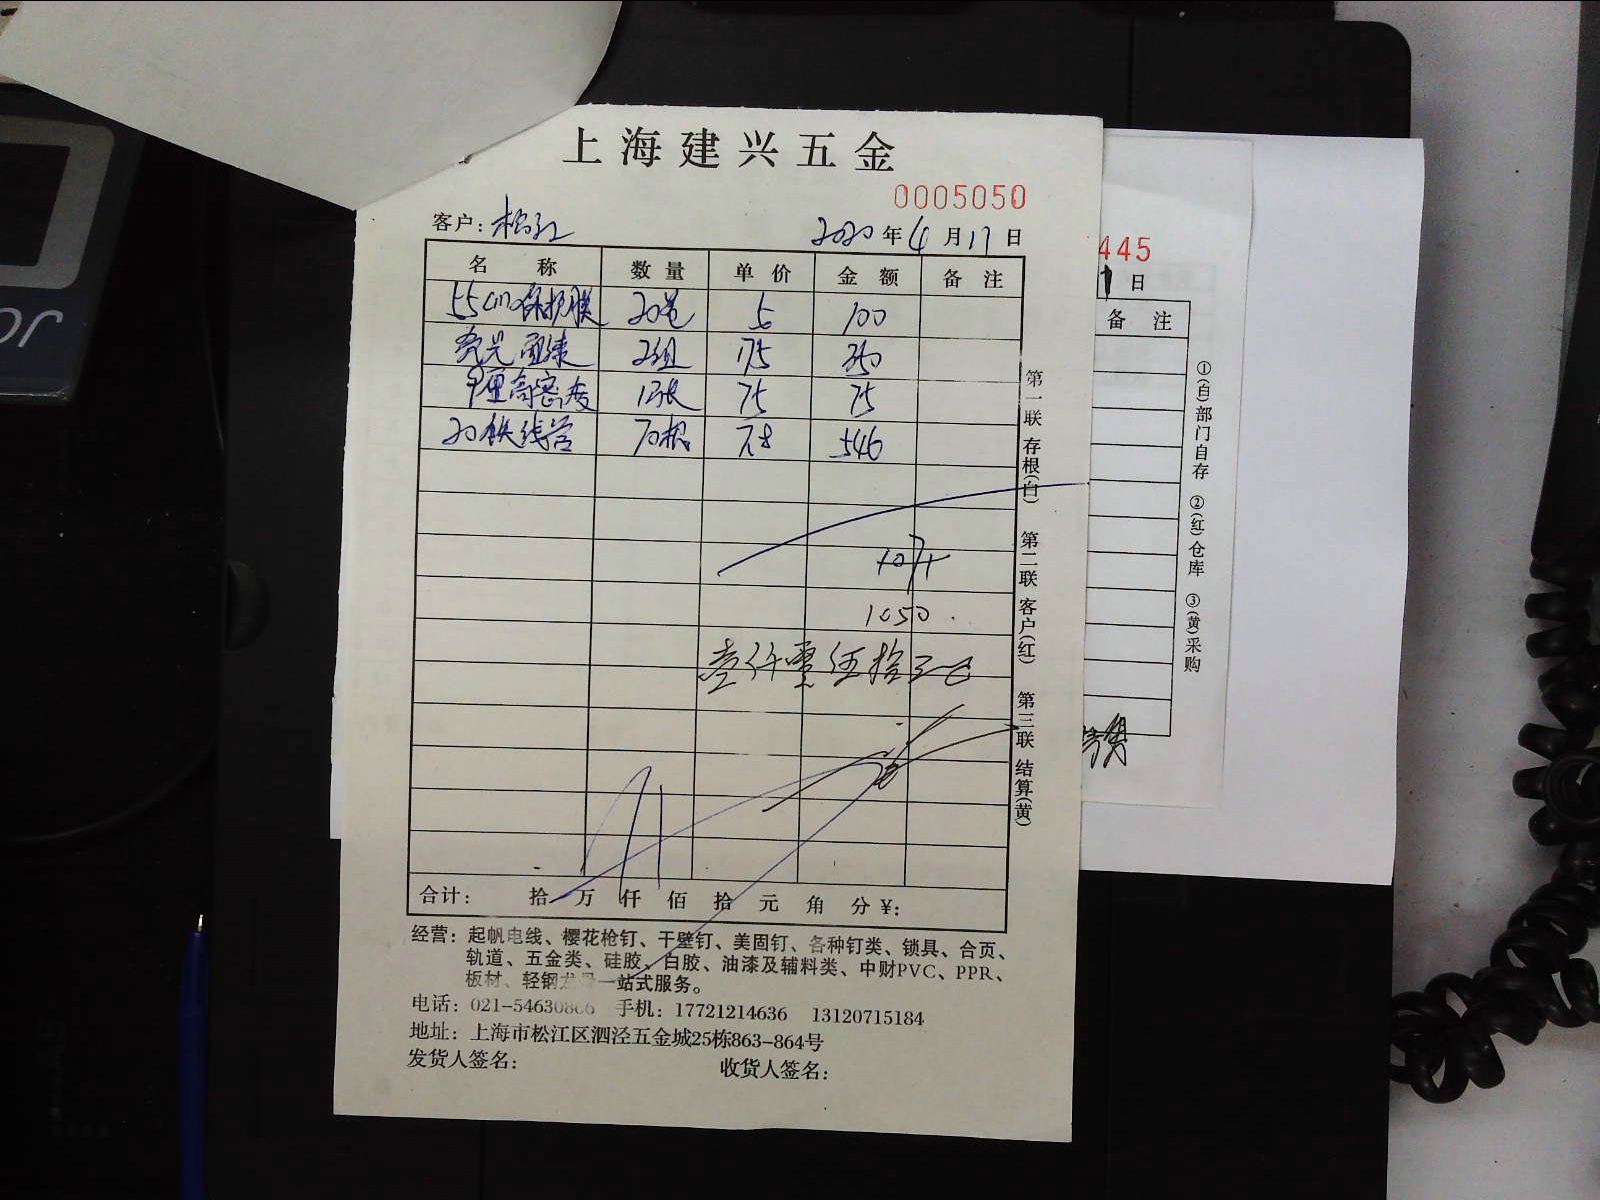 上海建兴五金
0005050
客户: 松江 2020年4月17日
名称 数量 单价 金额 备注
55cm保护膜 20卷 5 100
2组 175 350
9厘高密度 1张 75 75
20铁线管 70根 7.8 546
1071
1050.
壹仟零伍拾元
合计: 拾 万 仟 佰 拾 元 角 分 ¥:
第一联 存根(白) 第二联 客户(红) 第三联 结算(黄)
经营: 起帆电线、樱花枪钉、干壁钉、美固钉、各种钉类、锁具、合页、
轨道、五金类、硅胶、白胶、油漆及辅料类、中财PVC、PPR、
板材、轻钢龙骨一站式服务。
电话: 021-54630866 手机: 17721214636 13120715184
地址: 上海市松江区泗泾五金城25栋863-864号
发货人签名: 收货人签名:
445
日
备注
①(白)部门自存 ②(红)仓库 ③(黄)采购